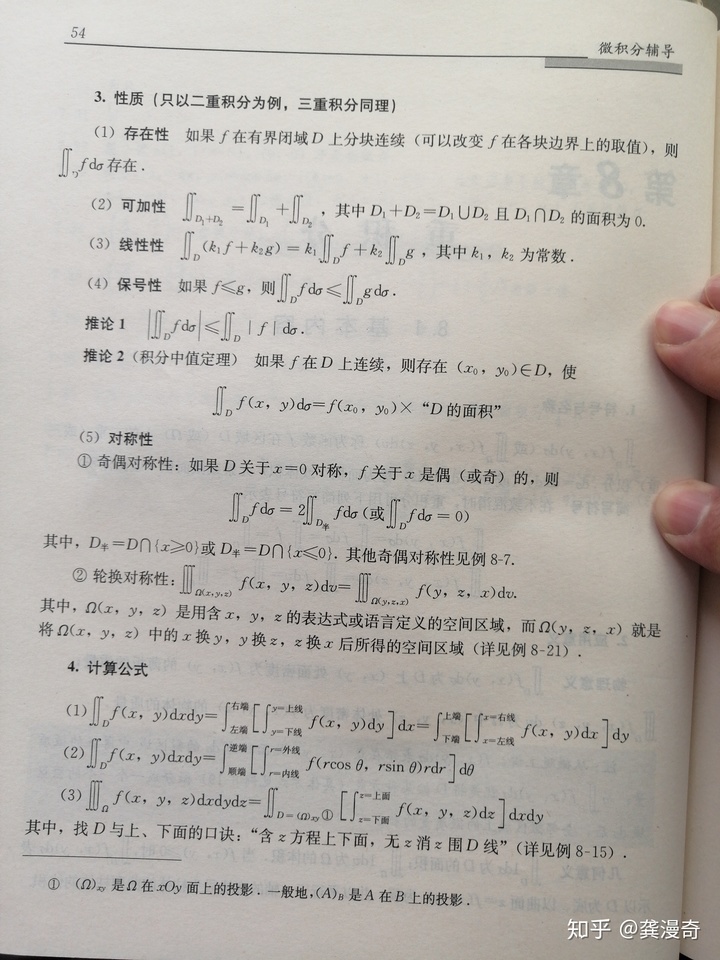 54
微积分辅导
3. 性质（只以二重积分为例，三重积分同理）
（1）存在性 如果 f 在有界闭域 D 上分块连续（可以改变 f 在各块边界上的取值），则
∬_D fdσ 存在．
（2）可加性 ∬_{D₁+D₂} = ∬_{D₁} + ∬_{D₂}，其中 D₁+D₂=D₁∪D₂ 且 D₁∩D₂ 的面积为 0.
（3）线性性 ∬_D (k₁f+k₂g) = k₁∬_D f + k₂∬_D g，其中 k₁，k₂ 为常数．
（4）保号性 如果 f≤g，则∬_D fdσ≤∬_D gdσ．
推论 1 |∬_D fdσ|≤∬_D | f | dσ．
推论 2（积分中值定理） 如果 f 在 D 上连续，则存在（x₀，y₀）∈D，使
∬_D f(x，y)dσ=f(x₀，y₀)×“D 的面积”
（5）对称性
① 奇偶对称性：如果 D 关于 x=0 对称，f 关于 x 是偶（或奇）的，则
∬_D fdσ = 2∬_{D半} fdσ (或∬_D fdσ = 0)
其中，D半=D∩{x≥0}或 D半=D∩{x≤0}. 其他奇偶对称性见例 8-7.
② 轮换对称性：∭_{Ω(x,y,z)} f(x，y，z)dv=∭_{Ω(y,z,x)} f(y，z，x)dv.
其中，Ω(x，y，z）是用含 x，y，z 的表达式或语言定义的空间区域，而 Ω(y，z，x）就是
将 Ω(x，y，z）中的 x 换 y，y 换 z，z 换 x 后所得的空间区域（详见例 8-21）．
4. 计算公式
(1)∬_D f(x，y)dxdy=∫_{左端}^{右端}[∫_{y=下线}^{y=上线} f(x，y)dy]dx=∫_{下端}^{上端}[∫_{x=左线}^{x=右线} f(x，y)dx]dy
(2)∬_D f(x，y)dxdy=∫_{顺端}^{逆端}[∫_{r=内线}^{r=外线} f(rcos θ，rsin θ)rdr]dθ
(3)∭_Ω f(x，y，z)dxdydz=∬_{D=(Ω)xy①}[∫_{z=下面}^{z=上面} f(x，y，z)dz]dxdy
其中，找 D 与上、下面的口诀：“含 z 方程上下面，无 z 消 z 围 D 线”（详见例 8-15）．
① (Ω)xy 是 Ω 在 xOy 面上的投影．一般地，(A)B 是 A 在 B 上的投影．
知乎 @龚漫奇